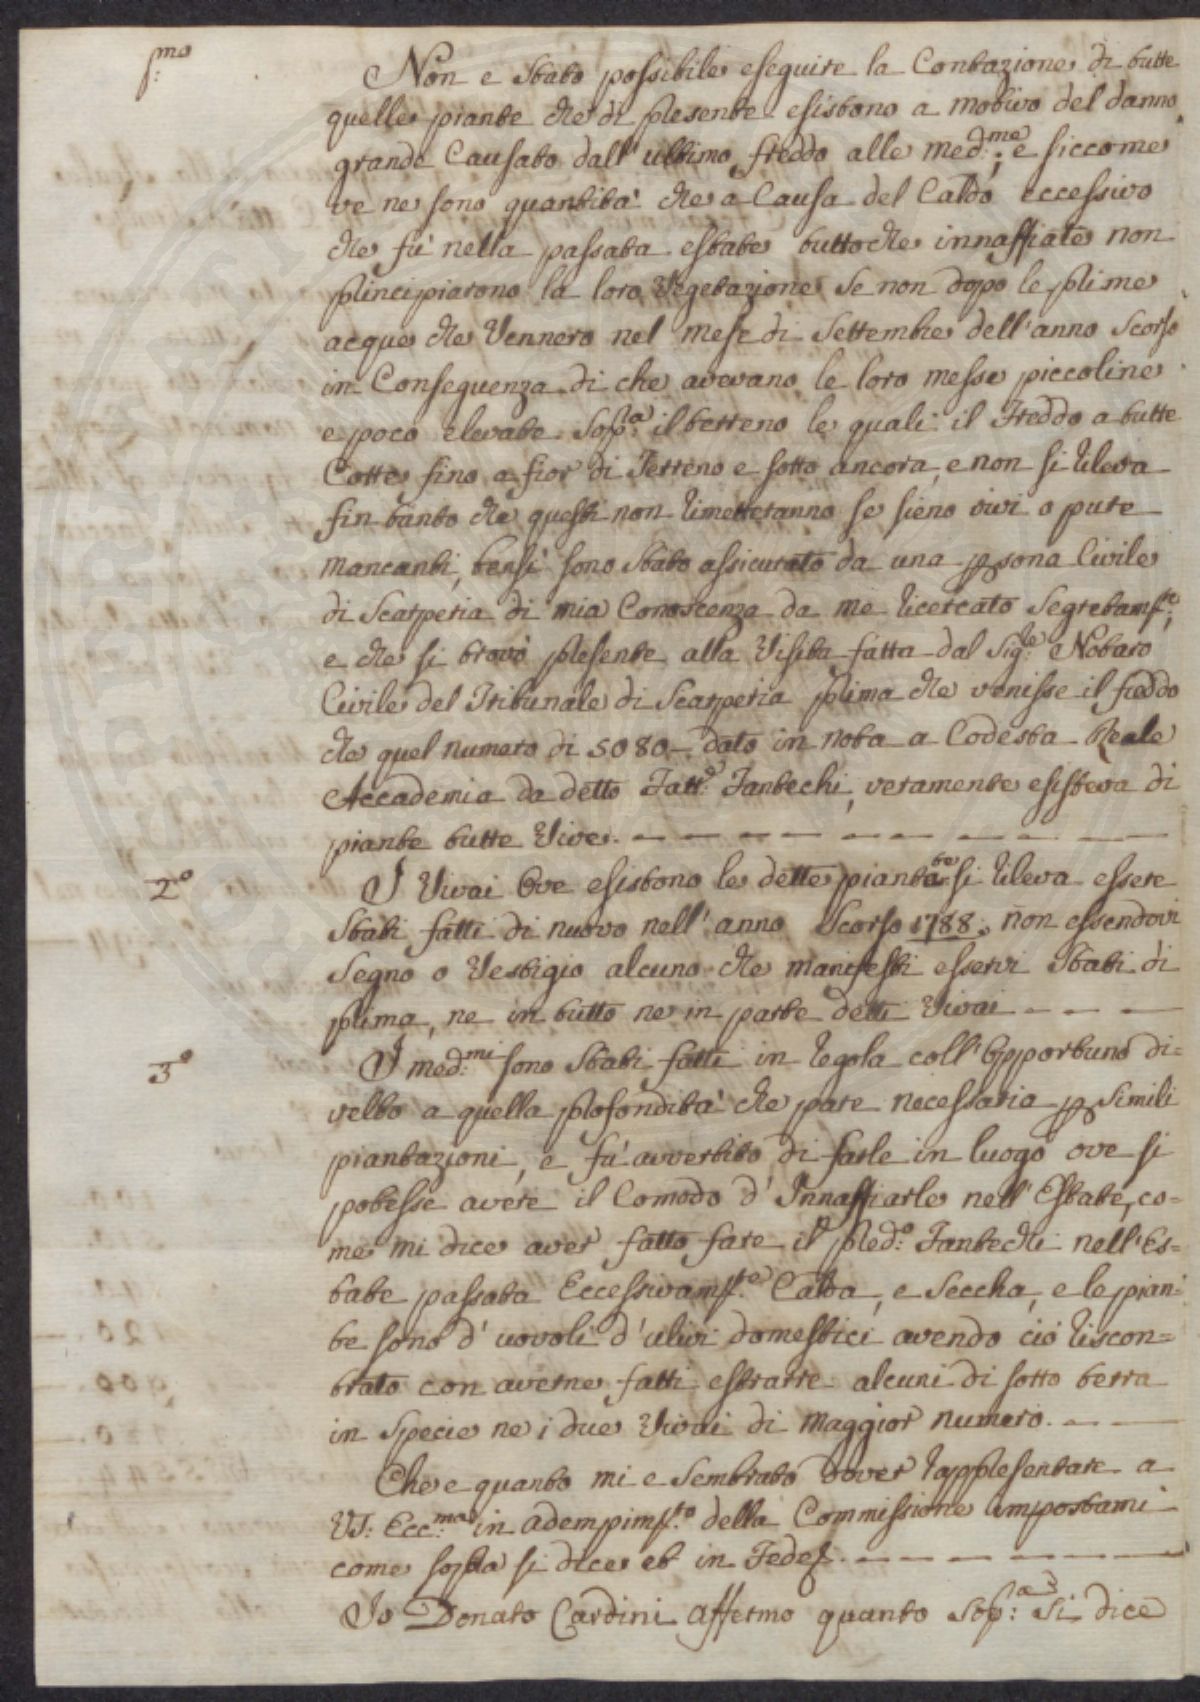 p:mo
Non e Stato possibile eseguire la Contazione di tutte
quelle piante che di presente esistono a motivo del danno
grande Causato dall'ultimo freddo alle med:me; e siccome
ve ne sono quantità che a Causa del Caldo eccessivo
che fù nella passata estate tuttoche innaffiate non
principiarono la loro Vegetazione se non dopo le prime
acque che Vennero nel mese di Settembre dell'anno Scorso
in Conseguenza di che avevano le loro messe piccoline
e poco elevate Sop:ra il terreno le quali il Freddo a tutte
Cotte fino a fior di Terreno e sotto ancora, e non si rileva
fin tanto che questi non rimetteranno se sieno vivi o pure
mancanti, bensì sono Stato assicurato da una psona Civile
di Scarperia di mia Conoscenza da me ricercato Segretam:te,
e che si trovò presente alla Visita fatta dal Sig:re Notaro
Civile del Tribunale di Scarperia prima che venisse il freddo
che quel numero di 5080 - dato in nota a Codesta Reale
Accademia da detto Fatt:e Fantechi, veramente esisteva di
piante tutte Vive. — — — — — — — — —
2°
I Vivai Ove esistono le dette piantate si rileva essere
Stati fatti di nuovo nell'anno Scorso 1788. non essendovi
Segno o Vestigio alcuno che manifesti esservi Stati di
prima, ne in tutto ne in parte detti Vivai — — —
3°
I med:mi sono Stati fatti in regola coll'Opportuno di=
velto a quella profondità che pare necessaria p Simili
piantazioni, e fù avvertito di farle in luogo ove si
potesse avere il Comodo d'Innaffiarle nell'Estate, co=
me mi dice aver fatto fare il pred:o Fantechi nell'Es=
tate passata Eccessivam:te Calda, e Seccha, e le pian=
te sono d'uovoli d'ulivi domestici avendo ciò riscon=
trato con averne fatti estrarre alcuni di sotto terra
in specie ne i due Vivai di maggior numero. — —
Che e quanto mi e Sembrato dover rappresentare a
VS: Ecc:ma in adempim:to della Commissione impostami
come sopra si dice et in Fede — — — — — — —
Io Donato Cardini affermo quanto Sop:a Si dice